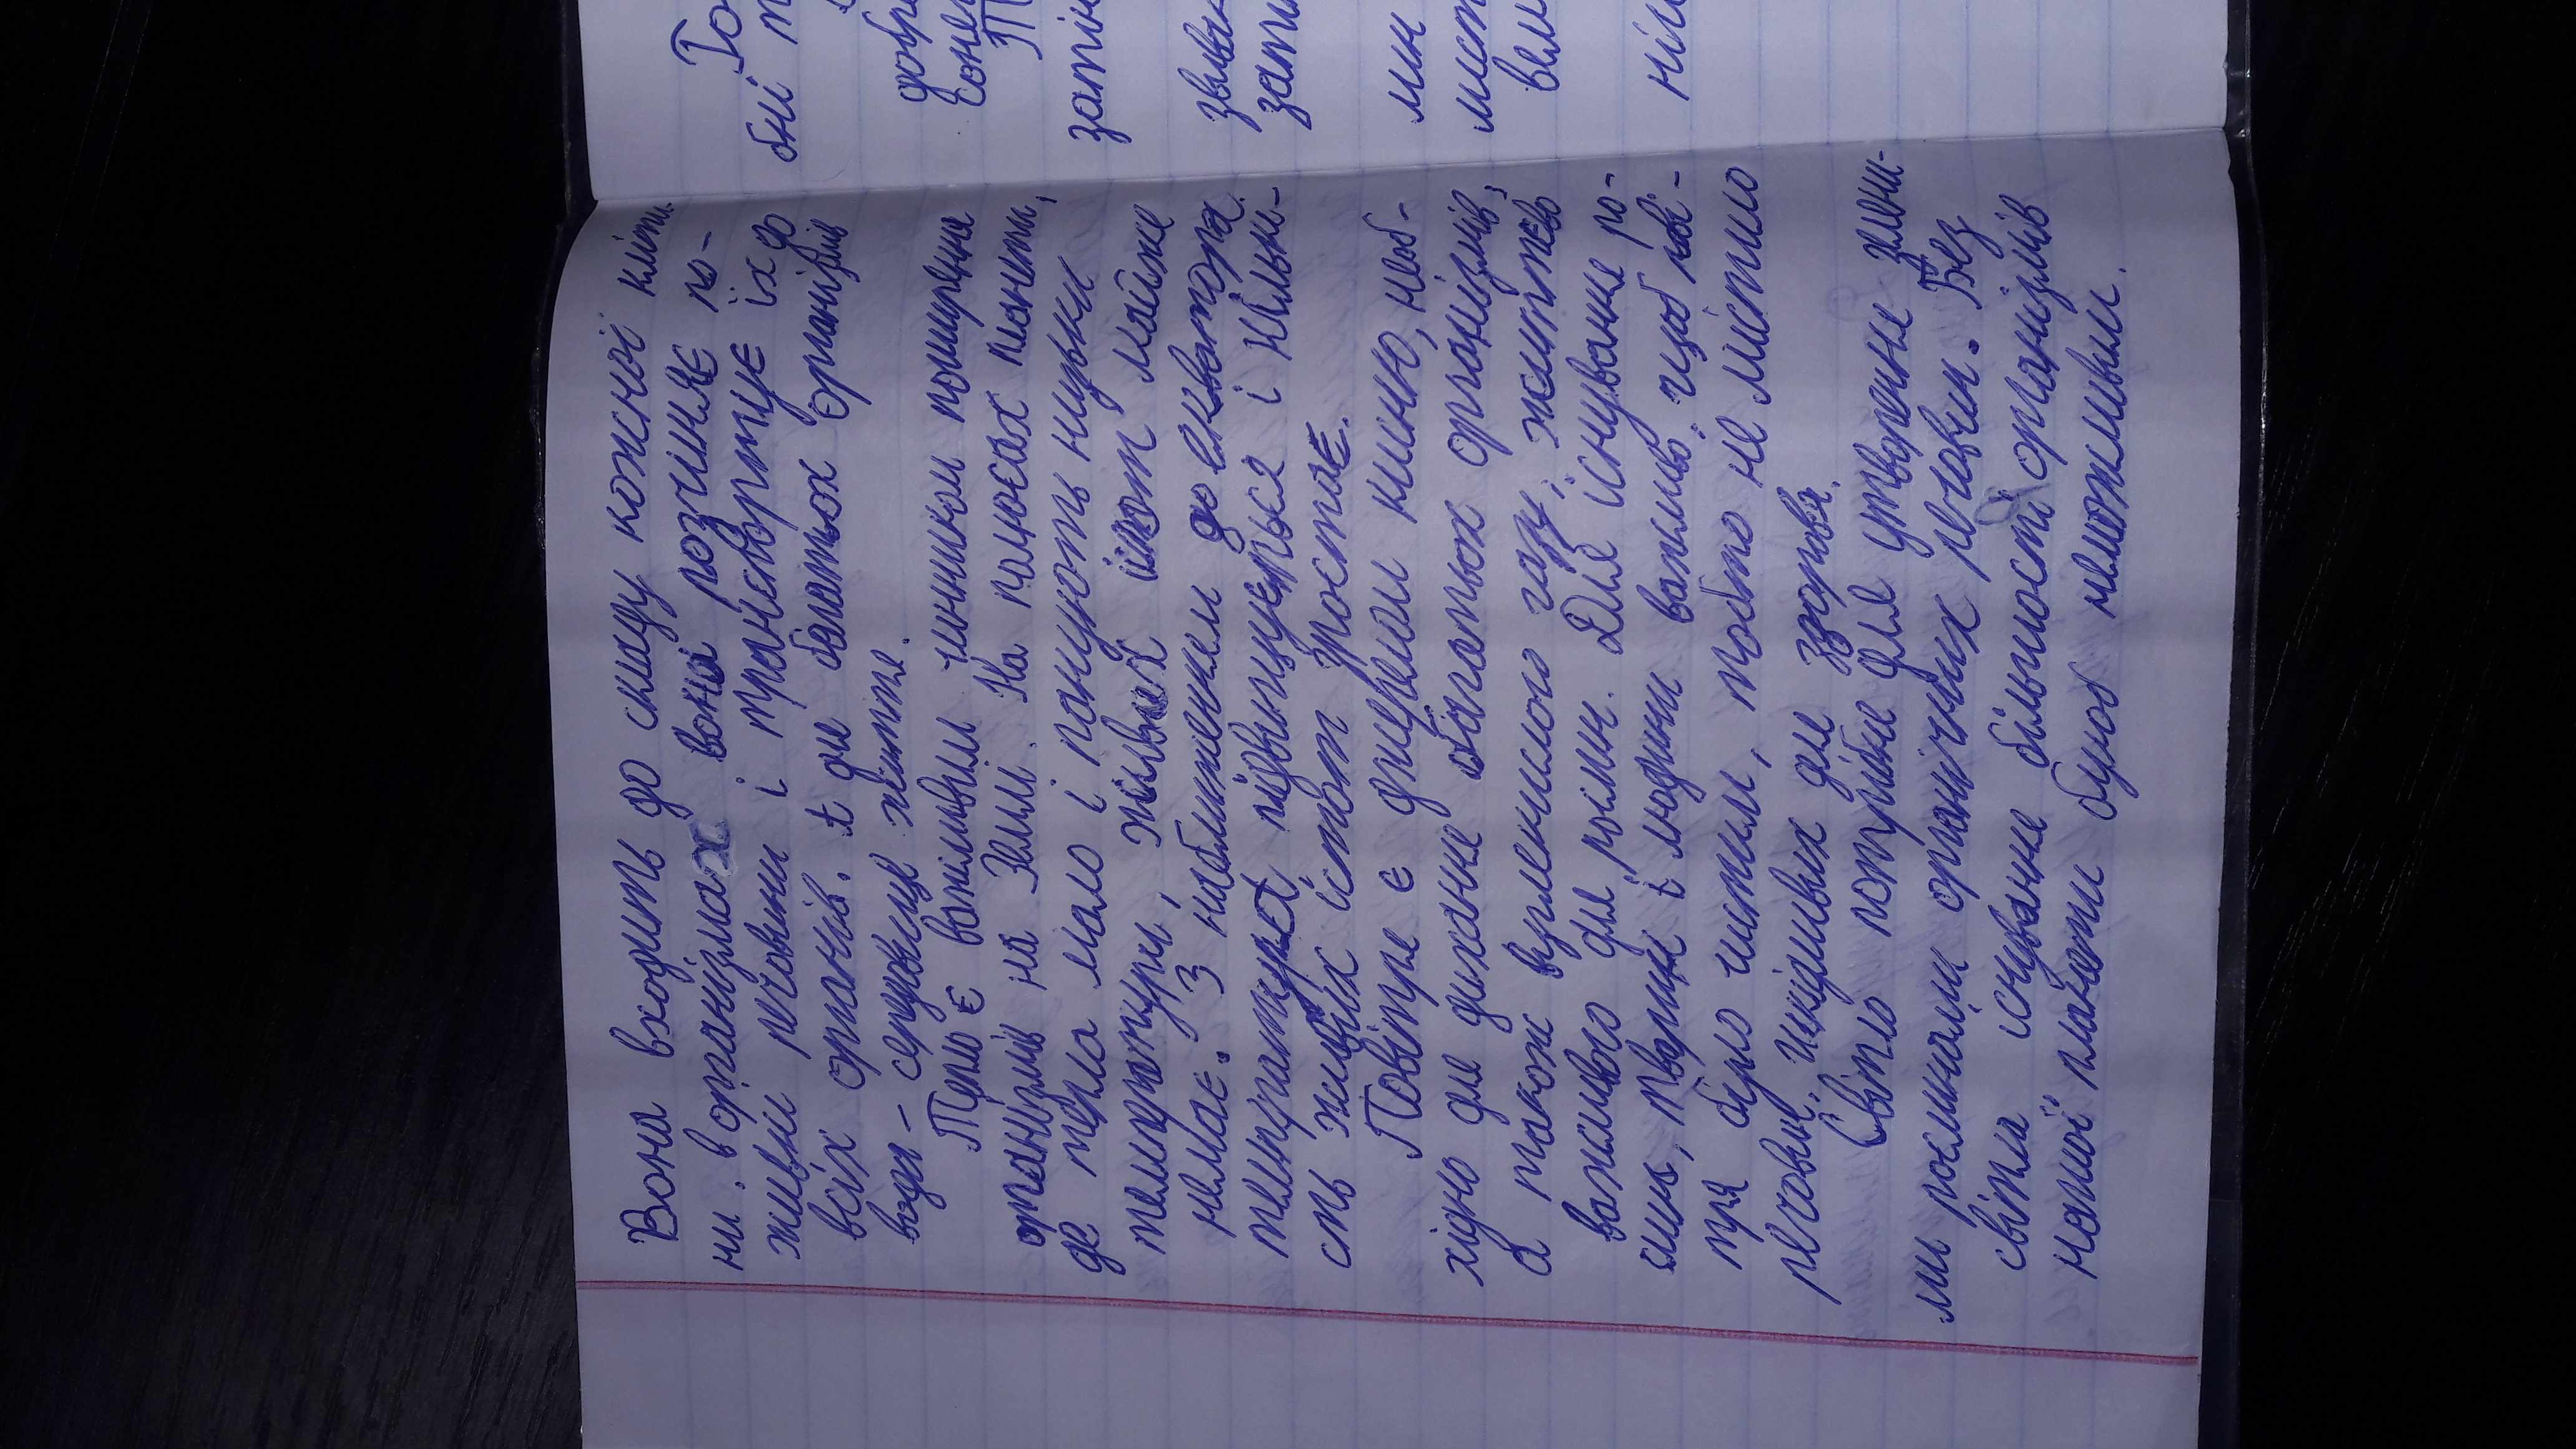 Вона входить до складу кожної кліти-
ни. в організмах вона розчиняє по-
живні речовини і транспортує їх до
всіх органів. І для багатьох організмів
вода - середовище життя.
Тепло є важливим чинником поширення
організмів на Землі. На полюсах планети,
де тепла мало і панують низькі
температури, живих істот майже
немає. З наближенням до екватора
температура підвищується і кількі-
сть живих істот зростає.
Повітря є джерелом кисню, необ-
хідно для дихання багатьох організмів,
а також вуглекислого газу, життєво
важливого для рослин. Для існування ро-
слин, тварин і людини важливо, щоб пові-
тря було чистим, тобто не містило
речовин, шкідливих для здоровя.
Світло потрібне для утворення зелени-
ми рослинами органічних речовин. Без
світла існування більшості організмів
нашої планети було б неможливим.
бні
зати
мин
мист